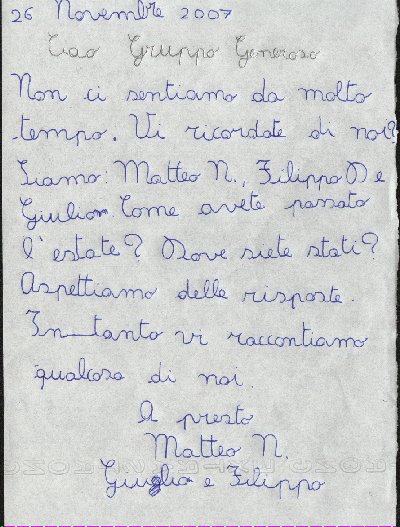 26 Novembre 2007
Ciao Gruppo Generoso
Non ci sentiamo da molto
tempo. Vi ricordate di noi?
Siamo: Matteo N., Filippo D e
Giulia. Come avete passato
l'estate? Dove siete stati?
Aspettiamo delle risposte.
In tanto vi raccontiamo
qualcosa di noi.
A presto
Matteo N.
Giuglia e Filippo